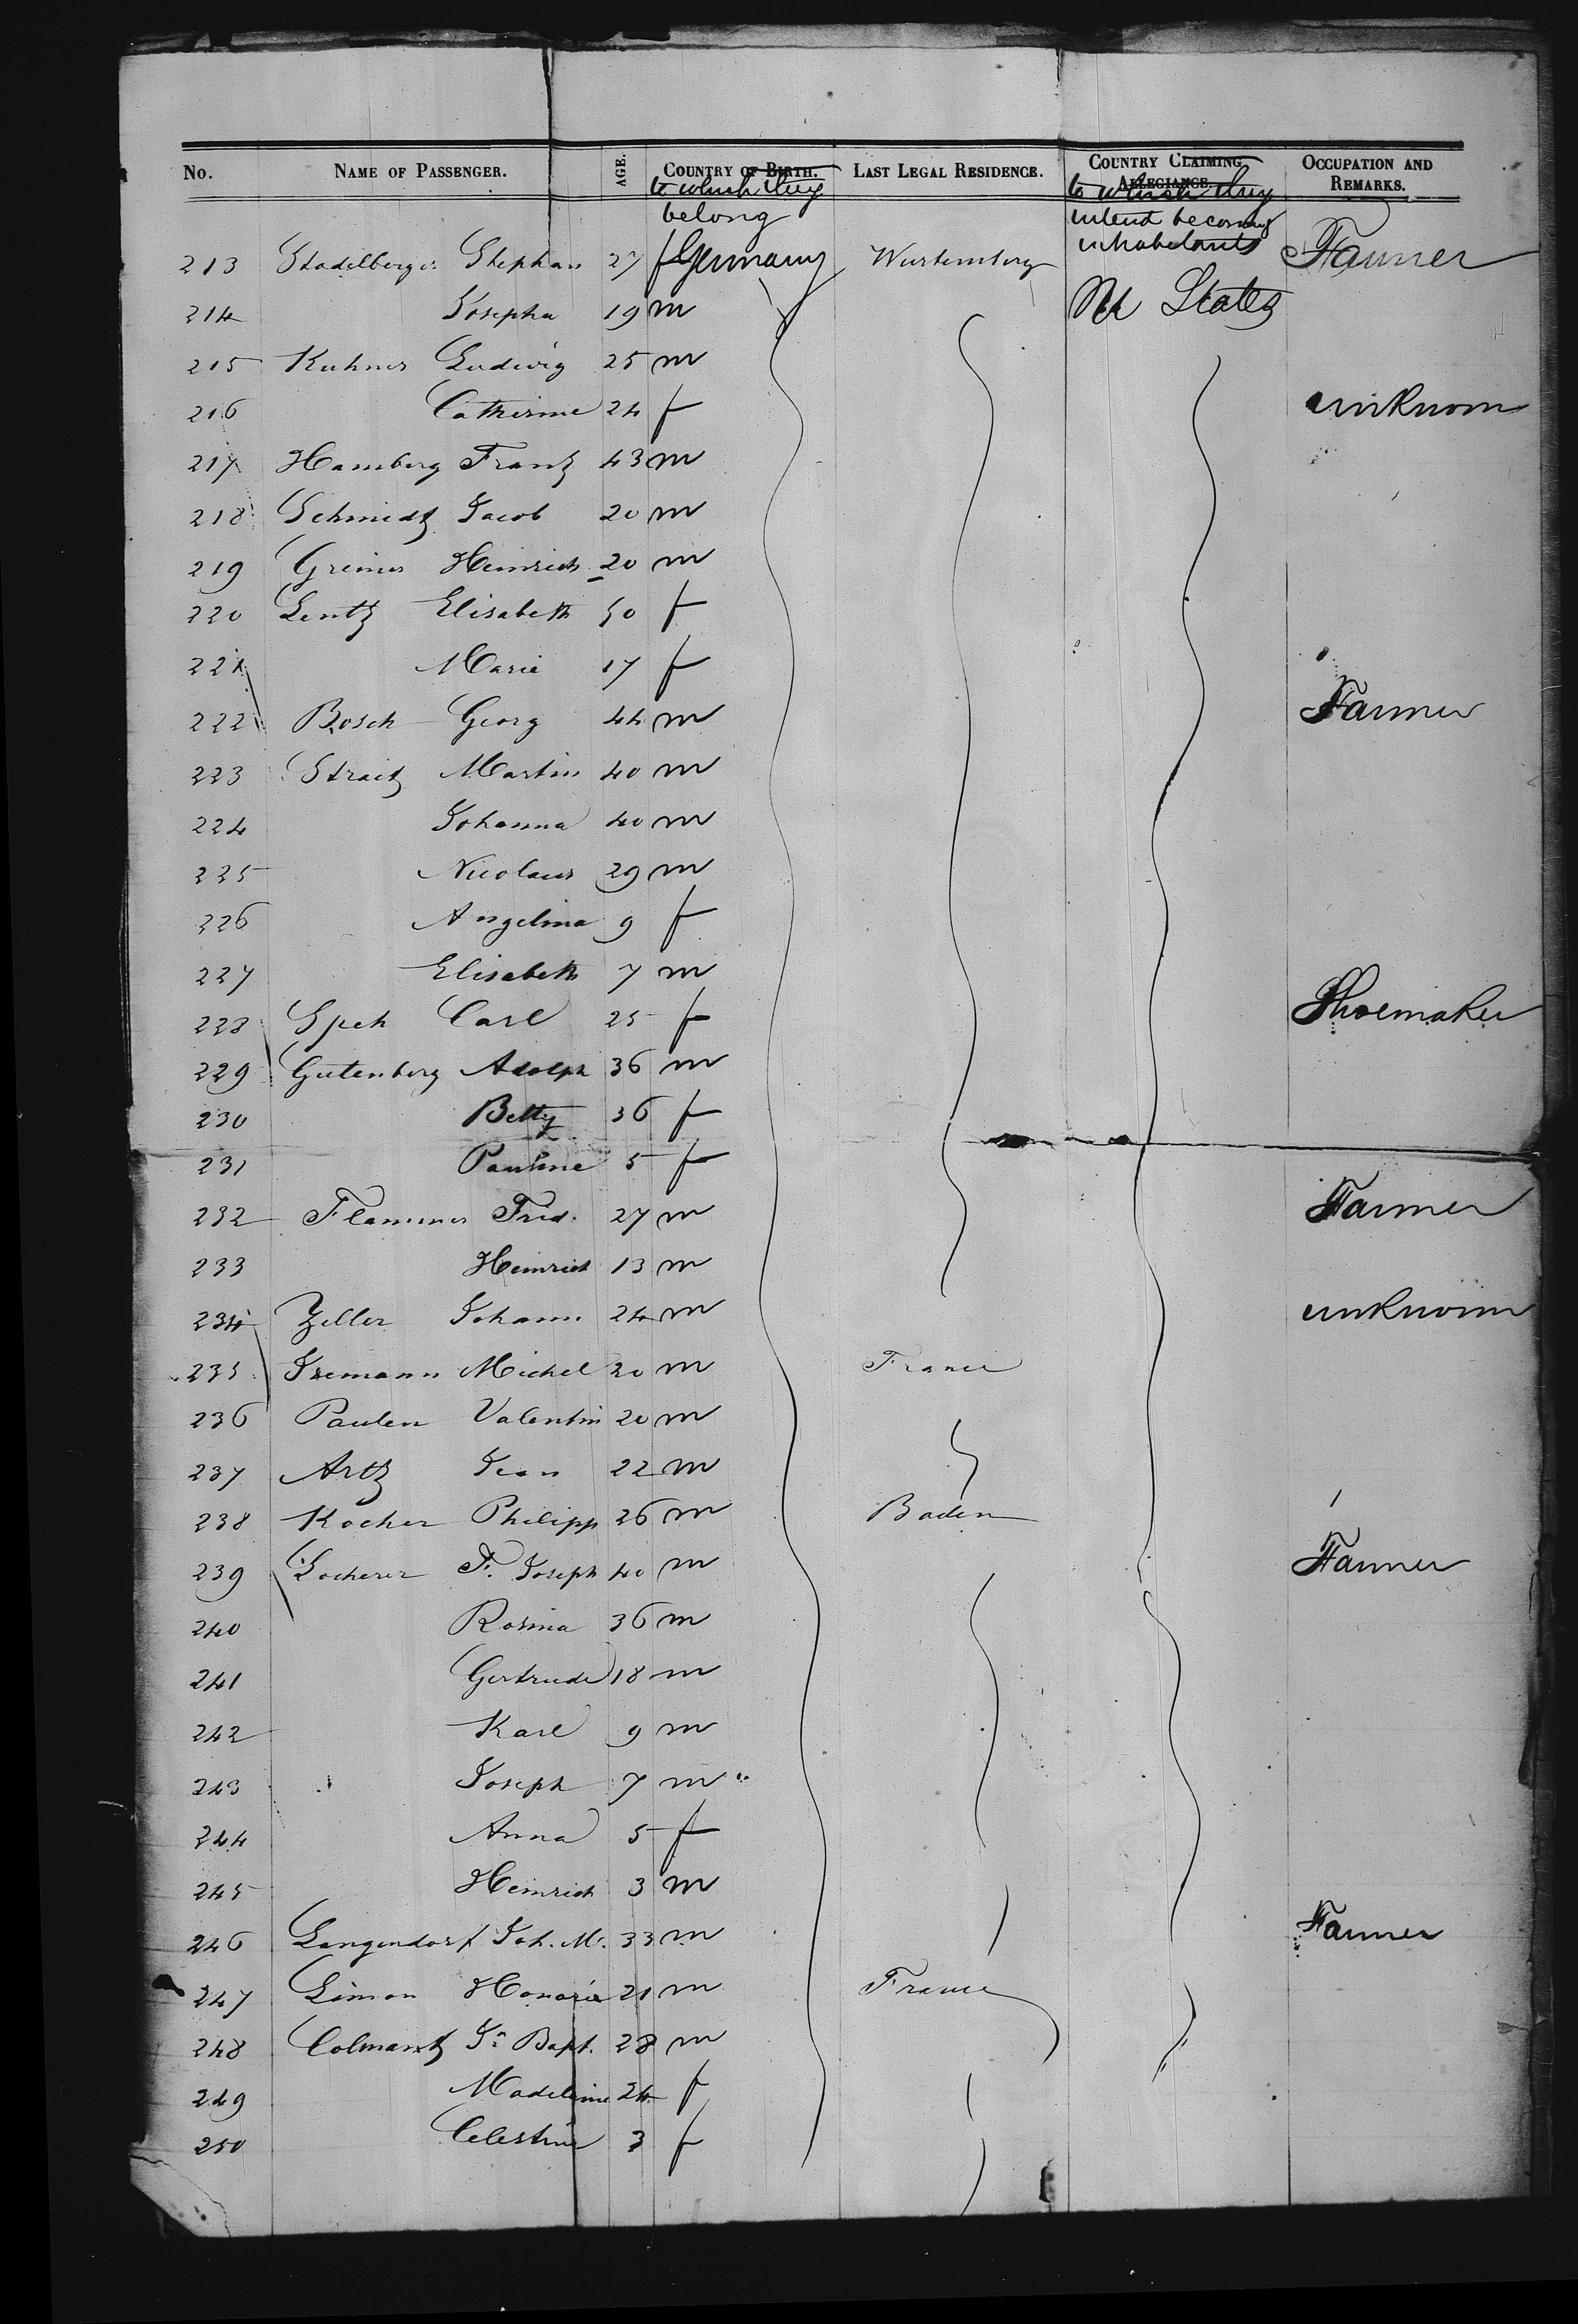 No. NAME OF PASSENGER. AGE. COUNTRY OF BIRTH. LAST LEGAL RESIDENCE. COUNTRY CLAIMING ALLEGIANCE. OCCUPATION AND REMARKS.
to which they belong
to which they intend becoming inhabitants
213 Stadelberger Stephan 27 f Germany Wurtemberg Farmer
214 Josepha 19 m States
215 Kuhner Ludwig 25 m
216 Catherine 24 f unknown
217 Hamberg Frantz 43 m
218 Schmidtz Jacob 20 m
219 Greiner Heinrich 20 m
220 Lentz Elisabeth 50 f
221 Marie 17 f
222 Bosch Georg 44 m Farmer
223 Straitz Martin 40 m
224 Johanna 40 m
225 Nicolaus 29 m
226 Angelina 9 f
227 Elisabeth 7 m
228 Speh Carl 25 f Shoemaker
229 Gutenberg Adolph 36 m
230 Betty 36 f
231 Pauline 5 f
232 Flammer Fred. 27 m Farmer
233 Heinrich 13 m
234 Zeller Johann 24 m unknown
235 Isemann Michel 20 m France
236 Paulen Valentin 20 m
237 Artz Jean 22 m
238 Kocher Philipp 26 m Baden
239 Locherer F. Joseph 40 m Farmer
240 Rosina 36 m
241 Gertrude 18 m
242 Karl 9 m
243 Joseph 7 m
244 Anna 5 f
245 Heinrich 3 m
246 Langendorf Joh. M. 33 m Farmer
247 Simon Honorie 21 m France
248 Colmantz Jn Bapt. 28 m
249 Madeleine 24 f
250 Celestine 3 f